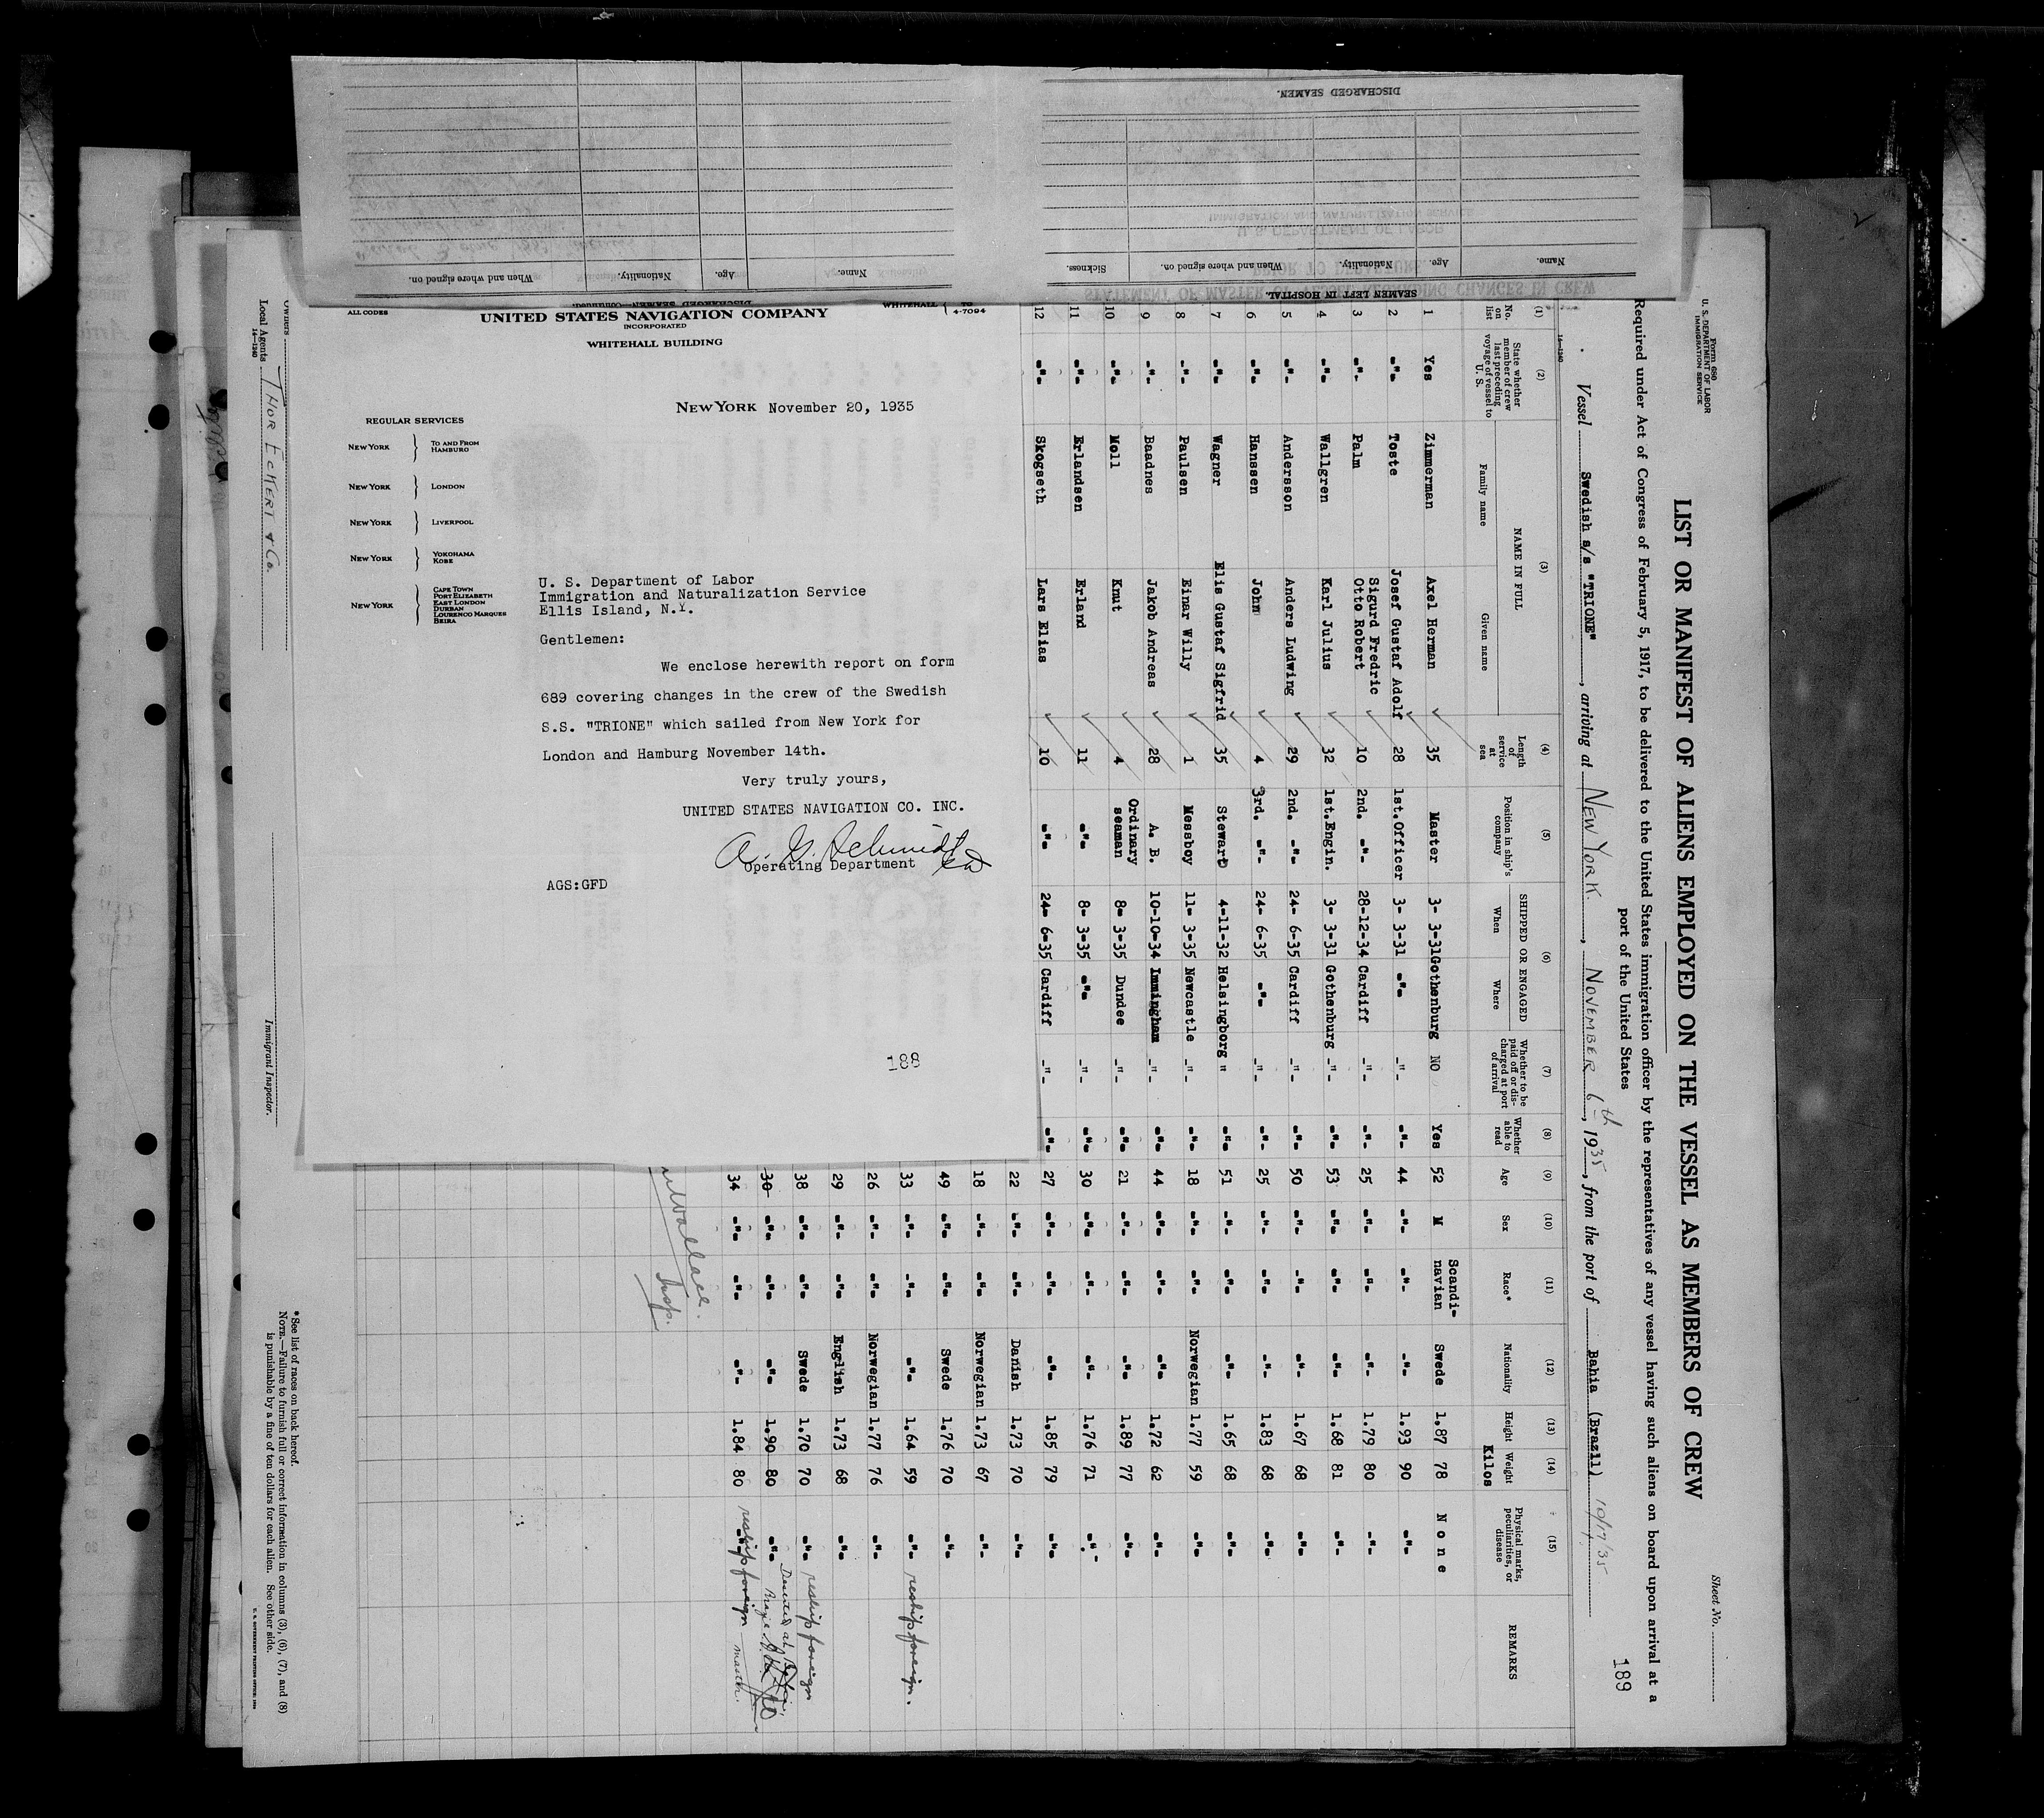 DISCHARGED SEAMEN.
Name.
Age.
Nationality.
When and where signed on.
Sickness.
Name.
Age.
Nationality.
When and where signed on.
SEAMEN LEFT IN HOSPITAL.
DISCHARGED SEAMEN—Continued.
ALL CODES
WHITEHALL
4-7094
UNITED STATES NAVIGATION COMPANY
INCORPORATED
WHITEHALL BUILDING
NEW YORK November 20, 1935
REGULAR SERVICES
NEW YORK } TO AND FROM HAMBURG
NEW YORK } LONDON
NEW YORK } LIVERPOOL
NEW YORK } YOKOHAMA KOBE
NEW YORK } CAPE TOWN PORT ELIZABETH EAST LONDON DURBAN LOURENCO MARQUES BEIRA
U. S. Department of Labor
Immigration and Naturalization Service
Ellis Island, N.Y.
Gentlemen:
We enclose herewith report on form
689 covering changes in the crew of the Swedish
S.S. "TRIONE" which sailed from New York for
London and Hamburg November 14th.
Very truly yours,
UNITED STATES NAVIGATION CO. INC.
A. G. Schmidt
Operating Department
AGS:GFD
188
Form 680
U. S. DEPARTMENT OF LABOR
IMMIGRATION SERVICE
Sheet No.
189
LIST OR MANIFEST OF ALIENS EMPLOYED ON THE VESSEL AS MEMBERS OF CREW
Required under Act of Congress of February 5, 1917, to be delivered to the United States immigration officer by the representatives of any vessel having such aliens on board upon arrival at a
port of the United States
Vessel Swedish s/s "TRIONE", arriving at NEW YORK, NOVEMBER 6th, 1935, from the port of Bahia (Brazil) 10/17/35
14—1240
(1) (2) (3) (4) (5) (6) (7) (8) (9) (10) (11) (12) (13) (14) (15)
No. on list
State whether member of crew last preceding voyage of vessel to U. S.
NAME IN FULL
Family name
Given name
Length of service at sea
Position in ship's company
SHIPPED OR ENGAGED
When
Where
Whether to be paid off or discharged at port of arrival
Whether able to read
Age
Sex
Race*
Nationality
Height
Weight
Kilos
Physical marks, peculiarities, or disease
REMARKS
1 Yes Zimmerman Axel Herman 35 Master 3- 3-31 Gothenburg NO Yes 52 M Scandinavian Swede 1.87 78 None
2 -"- Toste Josef Gustaf Adolf 28 1st.Officer 3- 3-31 -"- -"- -"- 44 -"- -"- -"- 1.93 90 -"-
3 -"- Palm Sigurd Fredric Otto Robert 10 2nd. -"- 28-12-34 Cardiff -"- -"- 25 -"- -"- -"- 1.79 80 -"-
4 -"- Wallgren Karl Julius 32 1st.Engin. 3- 3-31 Gothenburg -"- -"- 53 -"- -"- -"- 1.68 81 -"-
5 -"- Andersson Anders Ludwing 29 2nd. -"- 24- 6-35 Cardiff -"- -"- 50 -"- -"- -"- 1.67 68 -"-
6 -"- Hanssen John 4 3rd. -"- 24- 6-35 -"- -"- -"- 25 -"- -"- -"- 1.83 68 -"-
7 -"- Wagner Elis Gustaf Sigfrid 35 Stewart 4-11-32 Helsingborg " -"- 51 -"- -"- -"- 1.65 68 -"-
8 -"- Paulsen Einar Willy 1 Messboy 11- 3-35 Newcastle -"- -"- 18 -"- -"- Norwegian 1.77 59 -"-
9 -"- Baadnes Jakob Andreas 28 A. B. 10-10-34 Immingham -"- -"- 44 -"- -"- -"- 1.72 62 -"-
10 -"- Moll Knut 4 Ordinary seaman 8- 3-35 Dundee -"- -"- 21 -"- -"- -"- 1.89 77 -"-
11 -"- Erlandsen Erland 11 -"- 8- 3-35 -"- -"- -"- 30 -"- -"- -"- 1.76 71 -"-
12 -"- Skogseth Lars Elias 10 -"- 24- 6-35 Cardiff -"- -"- 27 -"- -"- -"- 1.85 79 -"-
22 -"- -"- Danish 1.73 70 -"-
18 -"- -"- Norwegian 1.73 67 -"-
49 -"- -"- Swede 1.76 70 -"-
33 -"- -"- -"- 1.64 59 -"- reship foreign.
26 -"- -"- Norwegian 1.77 76 -"-
29 -"- -"- English 1.73 68 -"-
38 -"- -"- Swede 1.70 70 -"- reship foreign
30 -"- -"- -"- 1.90 80 -"- Deserted at
34 -"- -"- -"- 1.84 80 -"- reship foreign master.
Wallace.
Insp.
Owners
Local Agents THOR ECKERT & Co.
14—1240
Immigrant Inspector.
*See list of races on back hereof.
NOTE.—Failure to furnish full or correct information in columns (3), (6), (7), and (8)
is punishable by a fine of ten dollars for each alien. See other side.
U. S. GOVERNMENT PRINTING OFFICE: 1934